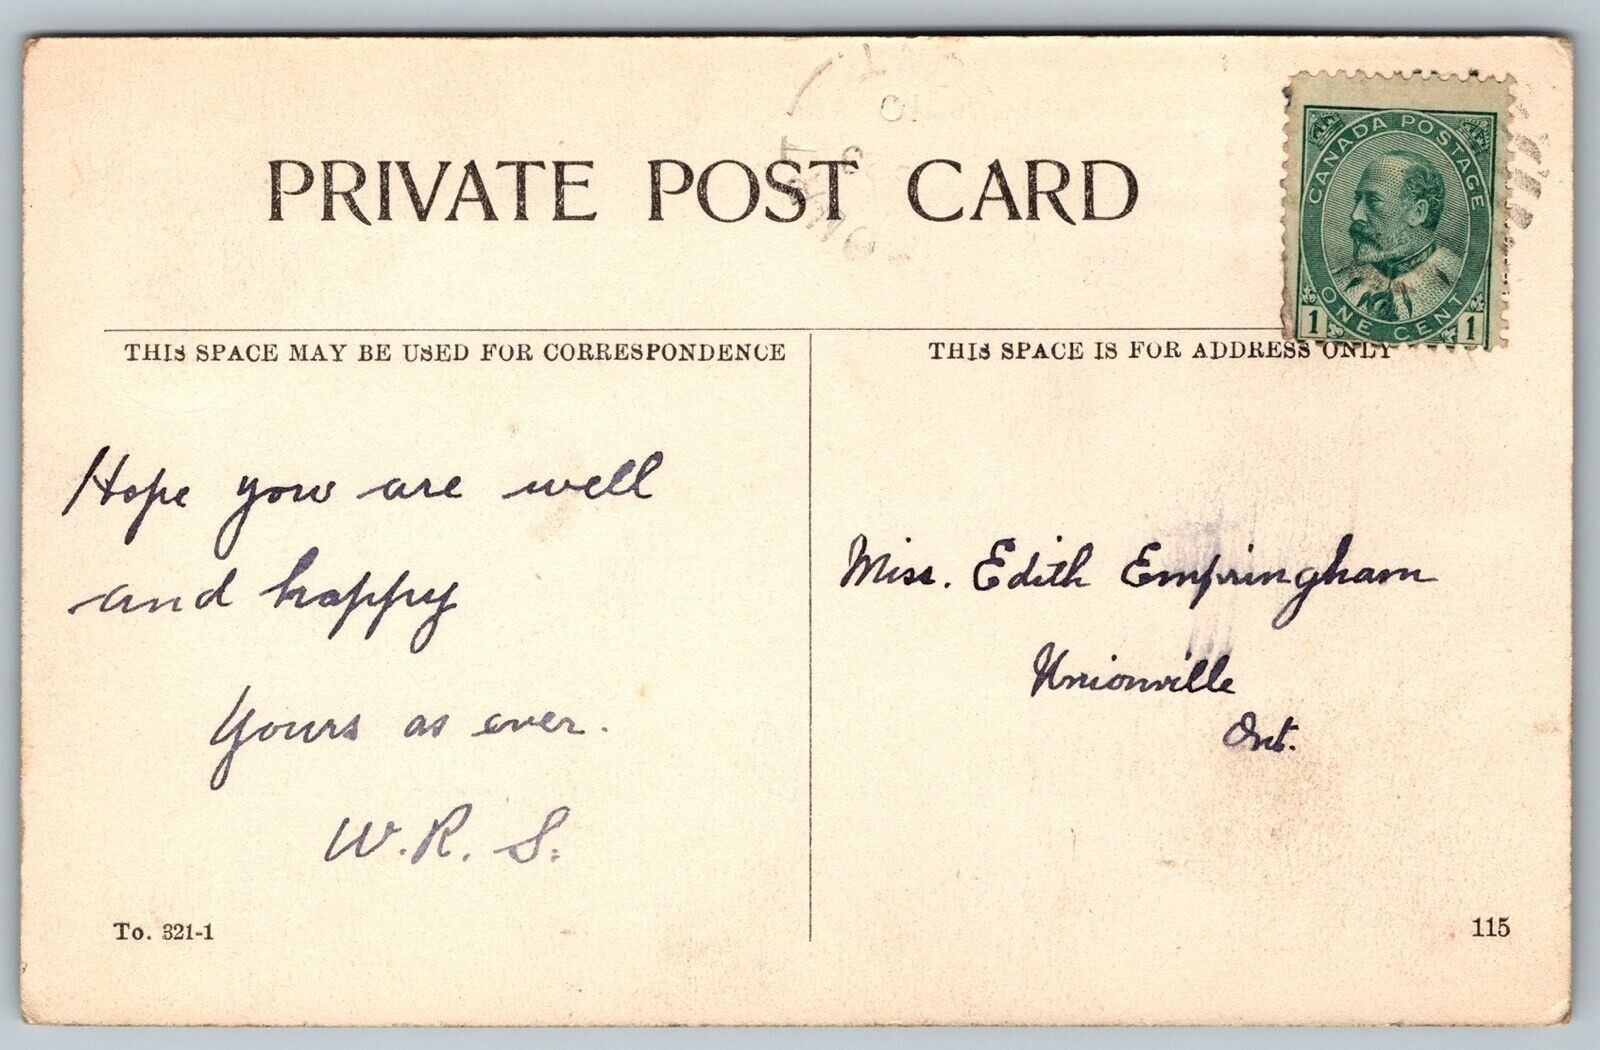 PRIVATE POST CARD
CANADA POSTAGE
ONE CENT
1 1
THIS SPACE MAY BE USED FOR CORRESPONDENCE
THIS SPACE IS FOR ADDRESS ONLY
Hope you are well
and happy
Yours as ever.
W. R. S.
Miss. Edith Empringham
Unionville
Ont.
To. 321-1
115